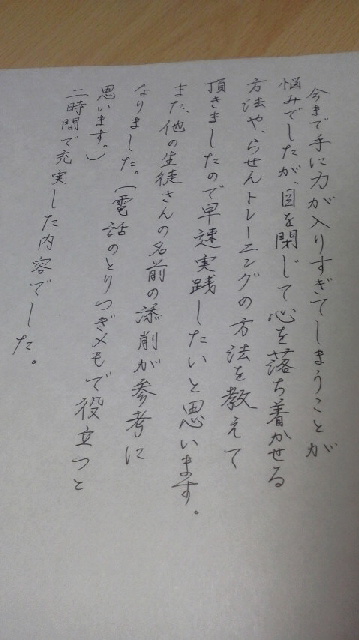 今まで手に力が入りすぎてしまうことが
悩みでしたが、目を閉じて心を落ち着かせる
方法や、らせんトレーニングの方法を教えて
頂きましたので早速実践したいと思います。
また、他の生徒さんの名前の添削が参考に
なりました。(電話のとりつぎメモで役立つと
思います。)
二時間で充実した内容でした。